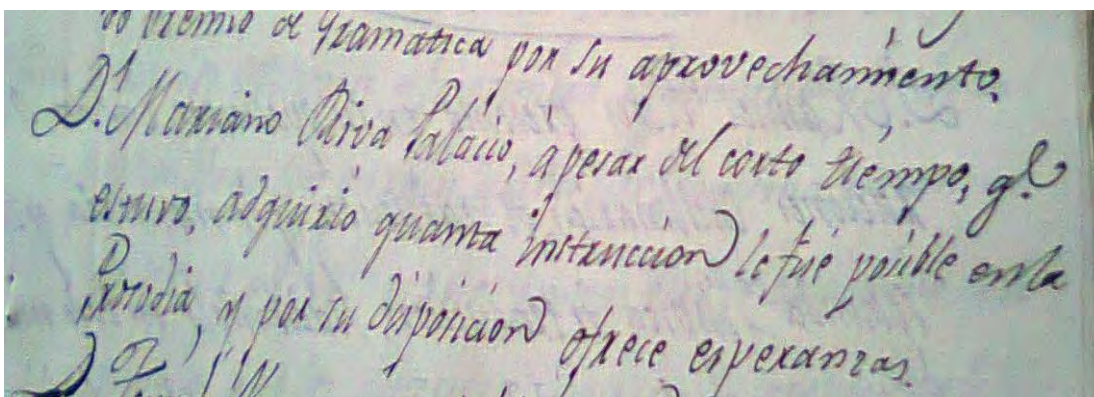 premio de Gramática por su aprovechamiento.
D.n Mariano Riva Palacio, apesar del corto tiempo, q.e
estuvo, adquirio quanta instruccion le fue posible en la
Prosodia, y por su disposicion ofrece esperanzas.